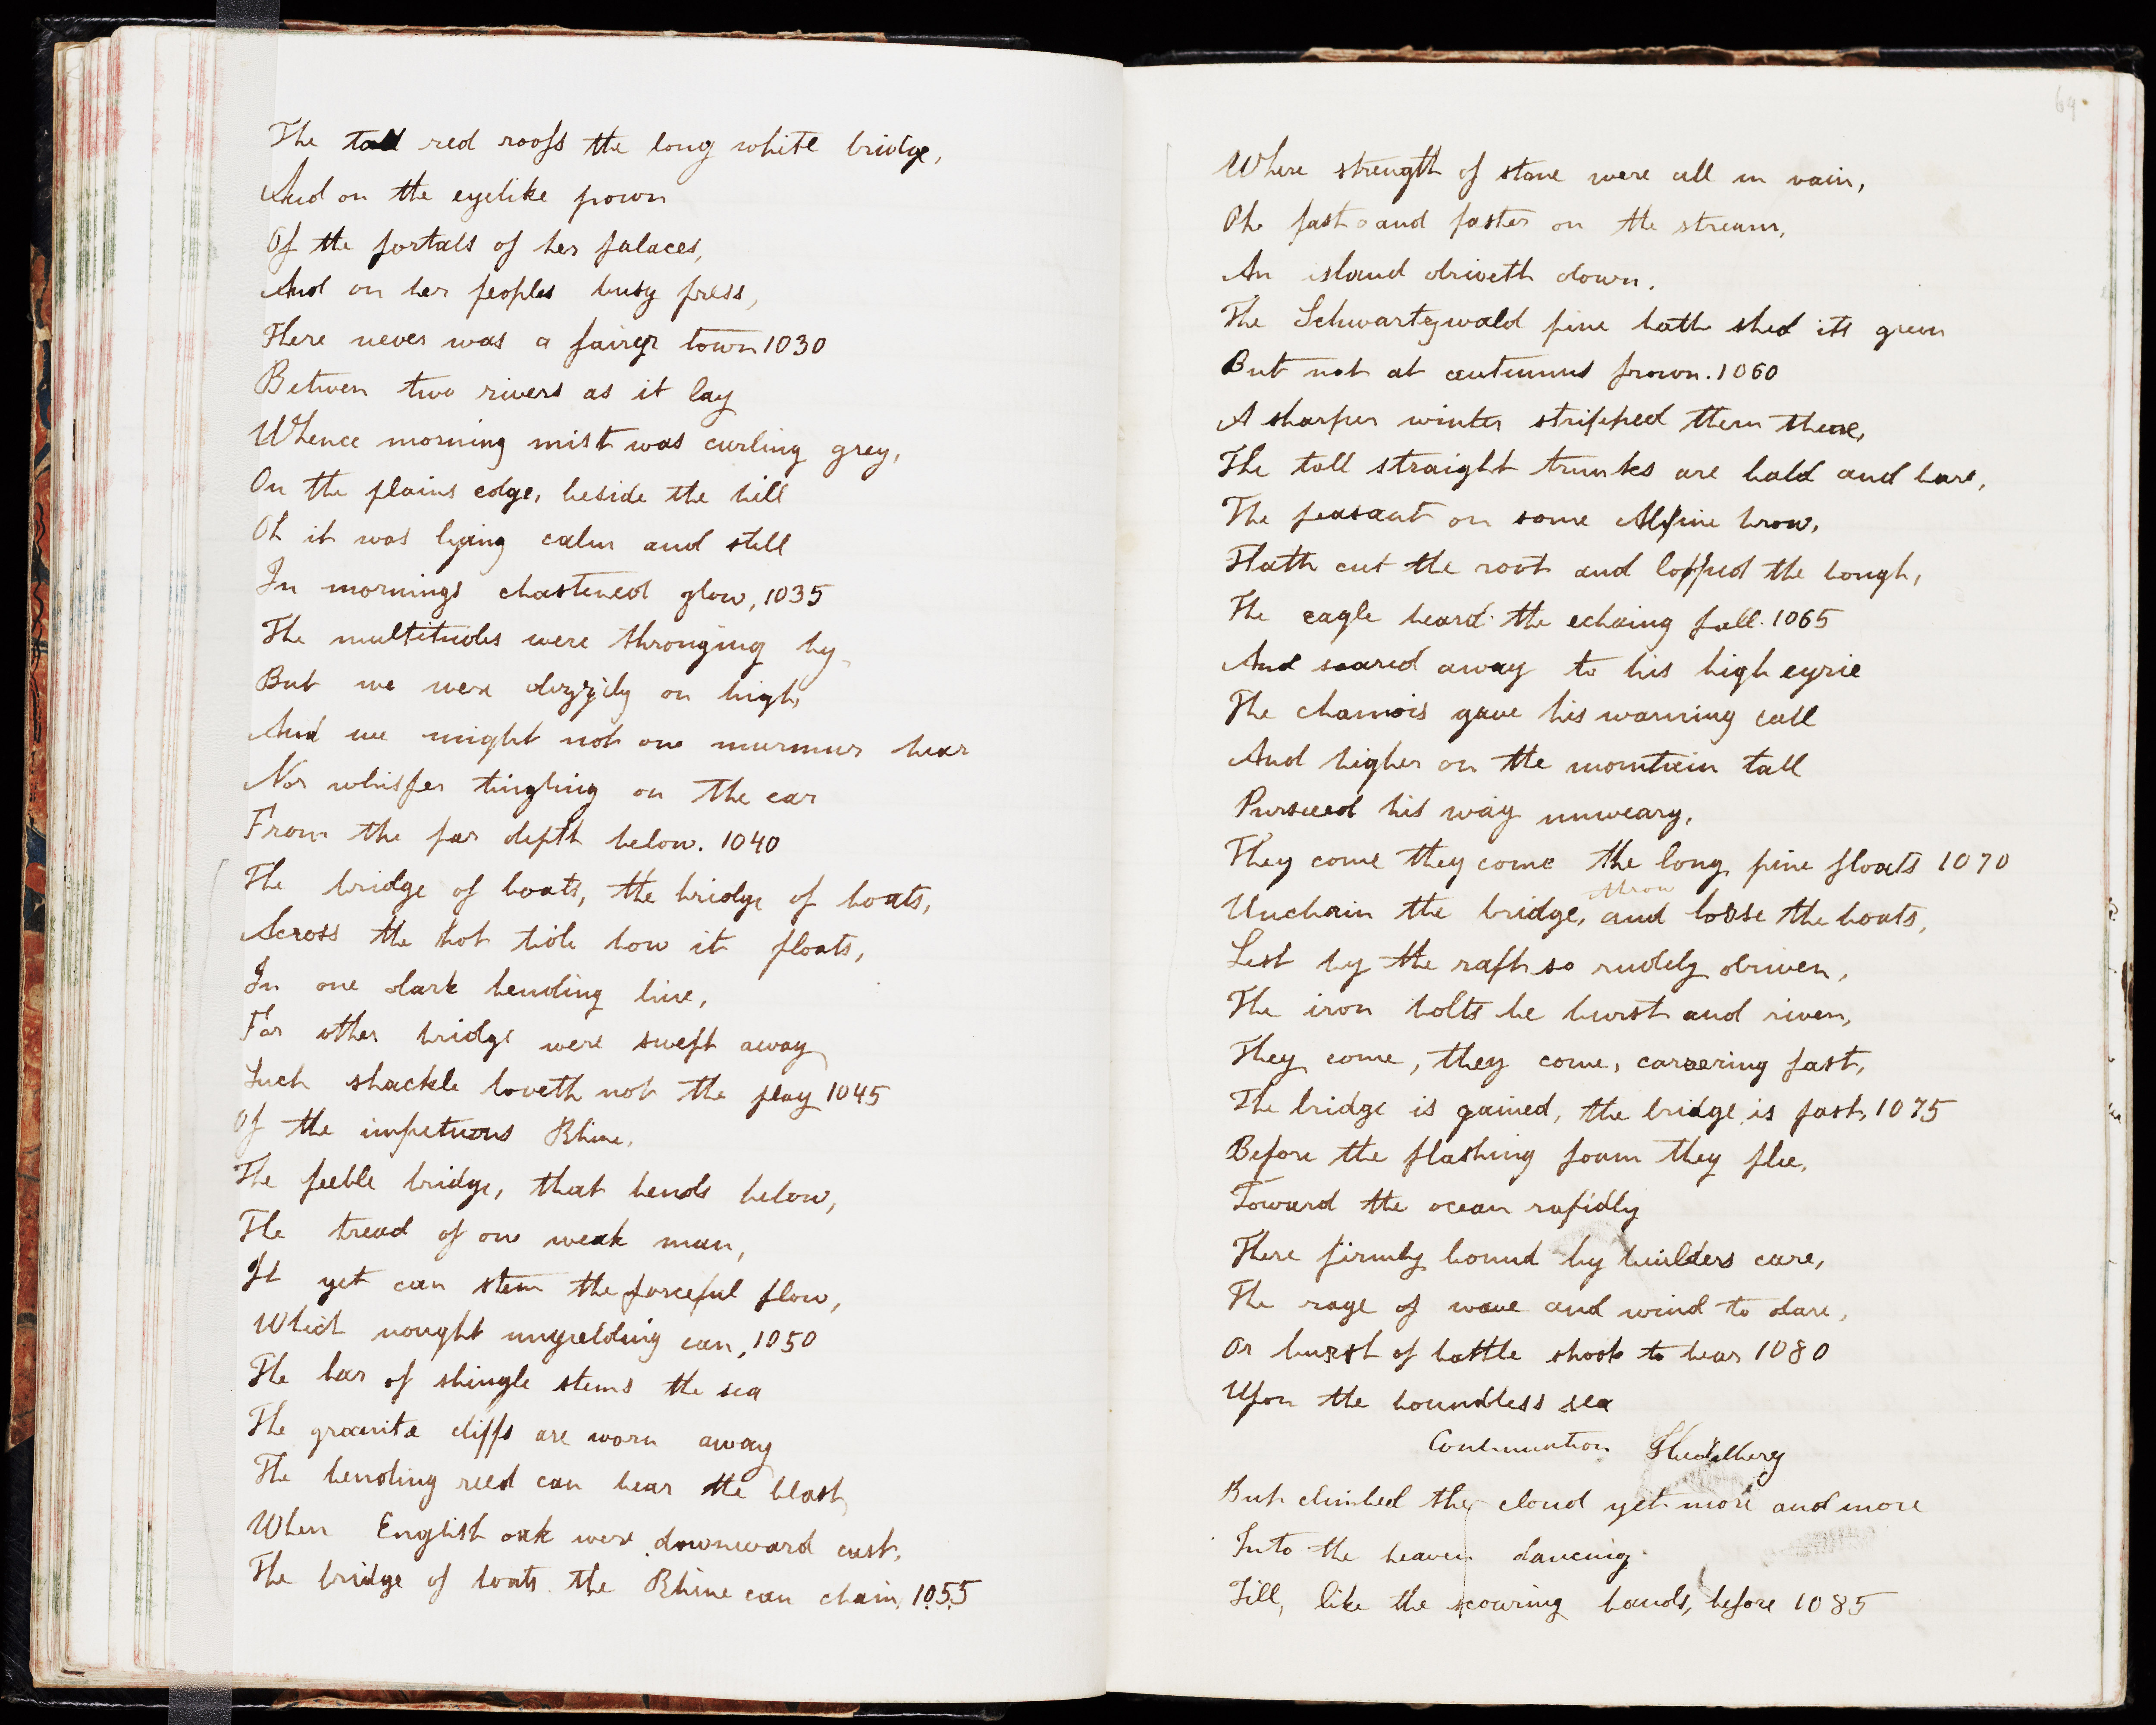 The tall red roofs the long white bridge,
And on the eyelike frown
Of the portals of her palaces,
And on her peoples busy press,
There never was a fairer town 1030
Between two rivers as it lay
Whence morning mist was curling grey,
On the plains edge, beside the hill
Oh it was lying calm and still
In mornings chastened glow, 1035
The multitudes were thronging by
But we were dizzily on high,
And we might not one murmur hear
Nor whisper tingling on the ear
From the far depth below. 1040
The bridge of boats, the bridge of boats,
Across the hot tide how it floats,
In one dark bending line,
For other bridge were swept away
Such shackle loveth not the play 1045
Of the impetuous Rhine.
The feeble bridge, that bends below,
The tread of one weak man,
It yet can stem the forceful flow,
Which nought unyielding can, 1050
The bar of shingle stems the sea
The granite cliffs are worn away
The bending reed can bear the blast,
When English oak were downward cast,
The bridge of boats the Rhine can chain, 1055
64
Where strength of stone were all in vain,
Oh fast and faster on the stream,
An island driveth down.
The Schwartzwald pine hath shed its green
But not at autumns frown. 1060
A sharper winter stripped them there,
The tall straight trunks are bald and bare,
The peasant on some Alpine brow,
Hath cut the root and lopped the bough,
The eagle heard the echoing fall 1065
And soared away to his high eyrie
The chamois gave his warning call
And higher on the mountain tall
Pursued his way unweary,
They come they come the long pine floats 1070
throw
Unchain the bridge, and loose the boats,
Lest by the raft so rudely driven,
The iron bolts be burst and riven,
They come, they come, careering fast,
The bridge is gained, the bridge is past, 1075
Before the flashing foam they flee,
Toward the ocean rapidly
There firmly bound by builders care,
The rage of wave and wind to dare,
Or burst of battle shock to bear 1080
Upon the boundless sea
Continuation Heidelberg
But climbed the cloud yet more and more
Into the heaven dancing
Till, like the scouring bands, before 1085